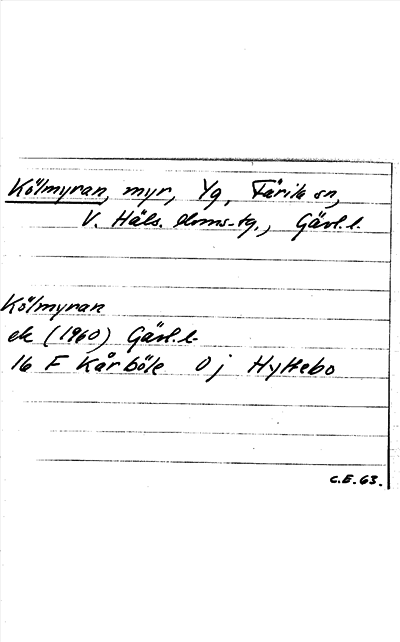 Kölmyran, myr, Yg, Färila sn,
V. Häls. doms.-tg., Gävl. l.
Kölmyran
ek (1960) Gävl. l.
16 F Kårböle 0 j Hyttebo
C.E. 63.